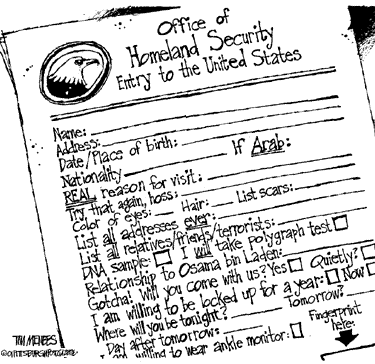 Office of
Homeland Security
Entry to the United States
Name:
Address:
Date/Place of birth:
Nationality If Arab:
REAL reason for visit:
Try that again, hoss:
Color of eyes: Hair: List scars:
List all addresses ever:
List all relatives/friends/terrorists:
DNA sample: I will take polygraph test
Relationship to Osama bin Laden:
Gotcha! Will you come with us? Yes Quietly?
I am willing to be locked up for a year: Now
Where will you be tonight? Tomorrow?
Day after tomorrow: Fingerprint here:
I am willing to wear ankle monitor: